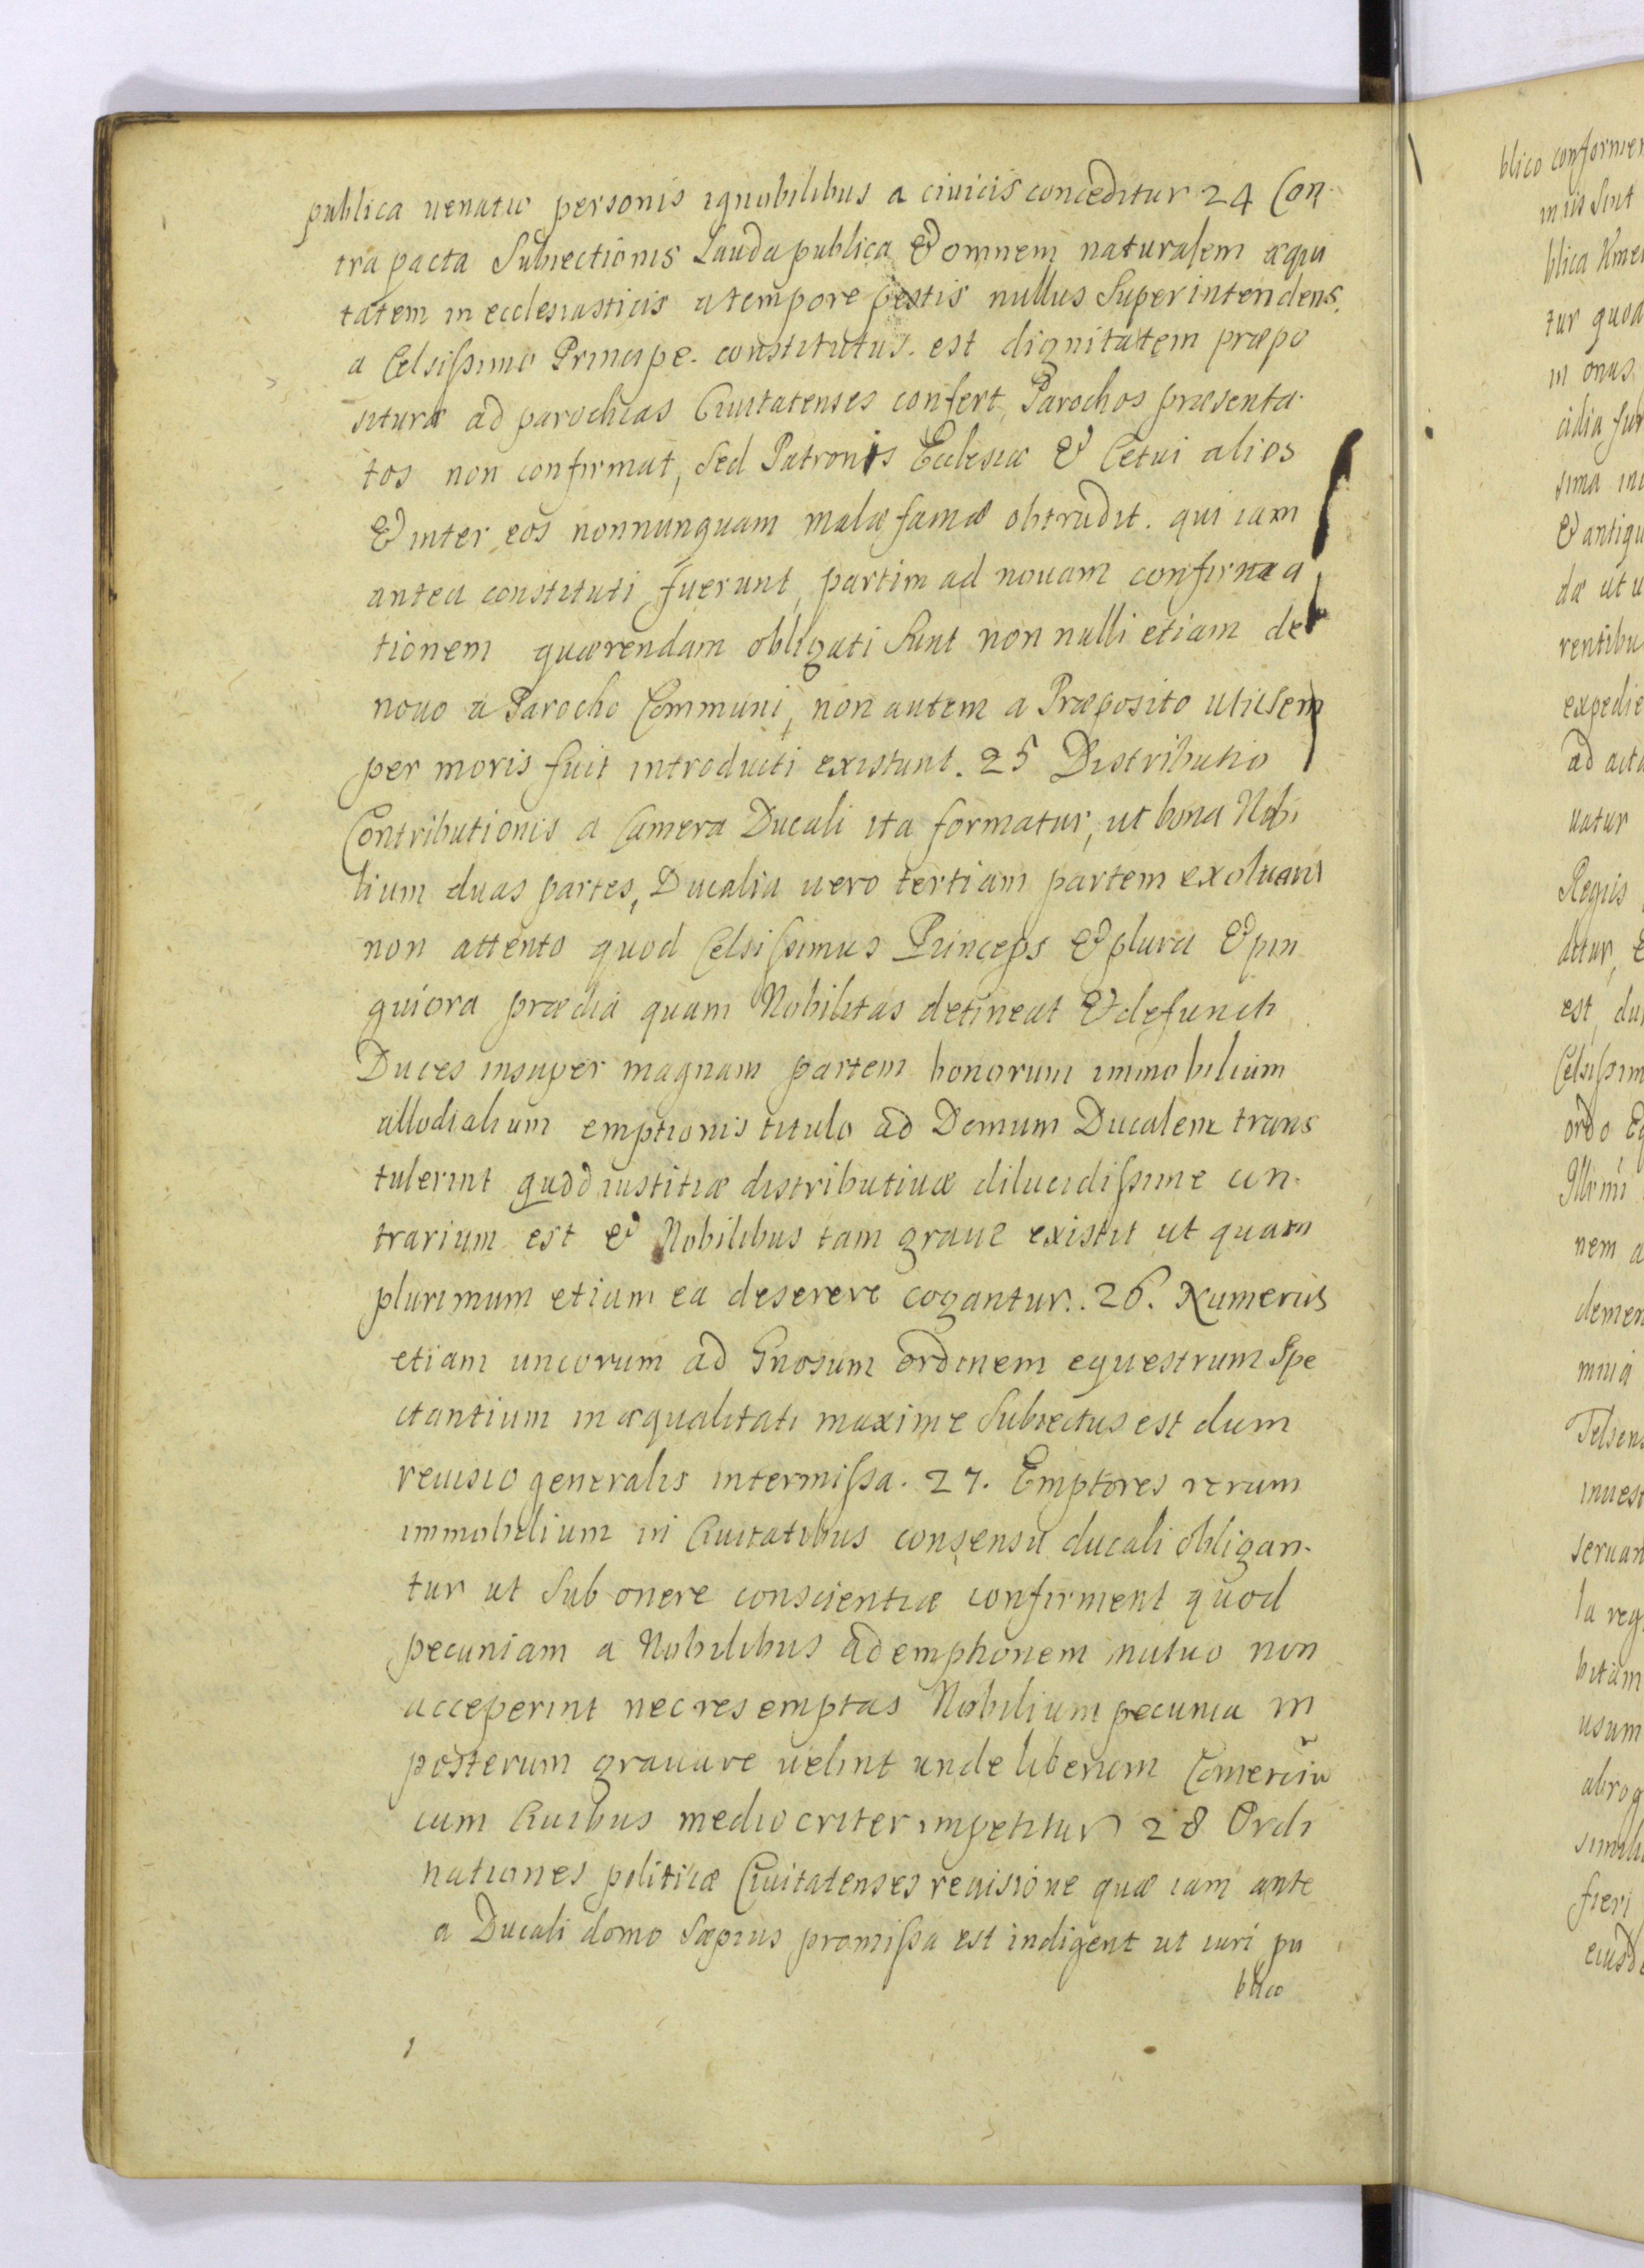 publica uenatio personis ignobilibus a ciuicis conceditur 24 Con-
tra pacta Subiectionis Lauda publica & omnem naturalem æqui
tatem in ecclesiasticis a tempore pestis nullus Superintendens.
a Celsissimo Principe. constitutus. est dignitatem præpo
situræ ad parochias Ciuitatenses confert, Parochos præsenta-
tos non confirmat, sed Patronis Ecclesiæ & Cetui alios
& inter eos nonnunquam malæ famæ obtrudit. qui iam
antea constituti fuerunt, partim ad nouam confirma
tionem quærendam obligati sunt non nulli etiam de
nouo a Parocho Communi, non autem a Præposito uti sem
per moris fuit introducti existunt. 25 Distributio
Contributionis a Camera Ducali ita formatur, ut bona Nobi
lium duas partes, Ducalia uero tertiam partem exoluant
non attento quod Celsissimus Princeps & plura & pin
guiora prædia quam Nobilitas detineat & defuncti
Duces insuper magnam partem bonorum immobilium
allodialium emptionis titulo ad Domum Ducalem trans
tulerint quod iustitiæ distributiuæ dilucidissime con-
trarium est & Nobilibus tam graue existit ut quam
plurimum etiam ea deserere cogantur. 26. Numerus
etiam uncorum ad Gnosum ordinem equestrum Spe
ctantium inæqualitati maxime Subiectus est dum
reuisio generalis intermissa. 27. Emptores rerum
immobilium in Ciuitatibus consensu ducali obligan-
tur ut Sub onere conscientiæ confirment quod
pecuniam a Nobilibus ad emptionem mutuo non
acceperint nec res emptas Nobilium pecunia in
posterum grauare uelint unde liberum Comerciũ
cum Ciuibus mediocriter impetitur 28 Ordi
nationes politicæ Ciuitatenses reuisione quæ iam ante
a Ducali domo Sæpius promissa est indigent ut iuri pu
blico